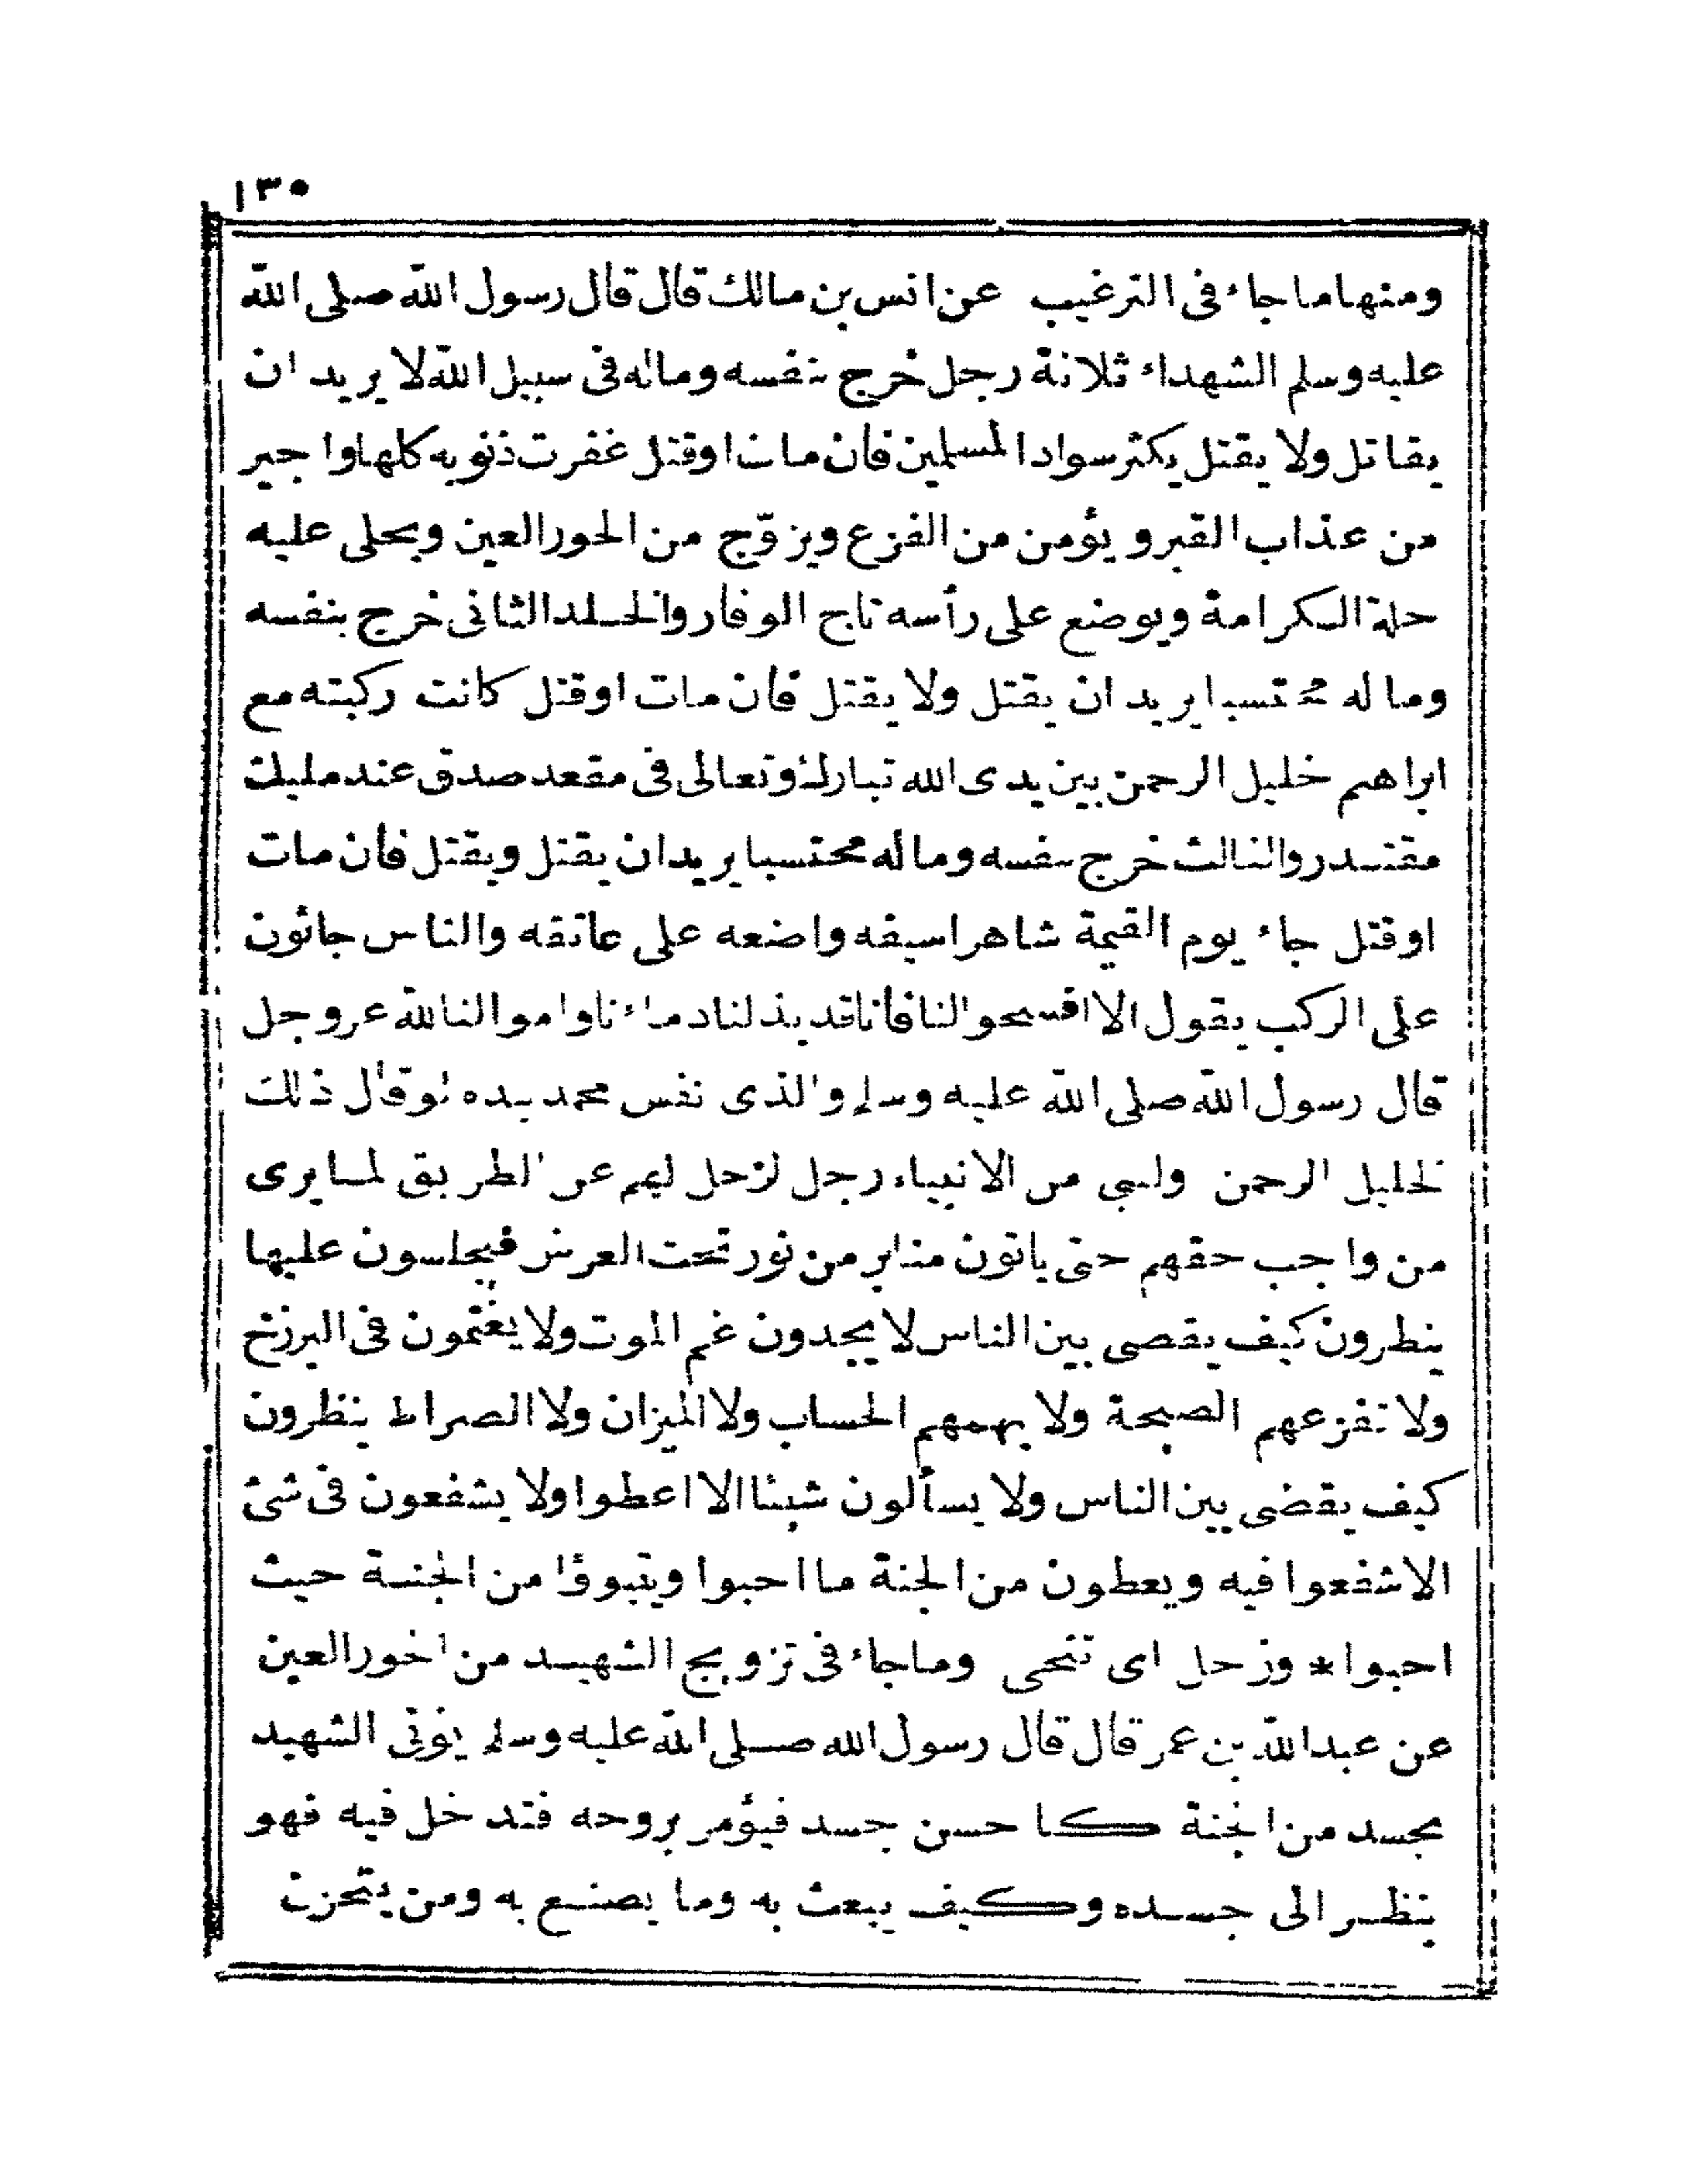 ١٣٥
ومنها ما جاء فى الترغيب عن انس بن مالك قال قال رسول الله صلى الله
عليه وسلم الشهداء ثلاثة رجل خرج بنفسه وماله فى سبيل الله لا يريد ان
يقاتل ولا يقتل يكثر سواد المسلمين فان مات اوقتل غفرت ذنوبه كلها واجير
من عذاب القبر و يؤمن من الفزع ويزوّج من الحور العين ويحلى عليه
حلة الكرامة ويوضع على رأسه تاج الوقار والخلد الثانى خرج بنفسه
وماله محتسبا يريد ان يقتل ولا يقتل فان مات اوقتل كانت ركبته مع
ابراهيم خليل الرحمن بين يدى الله تبارك وتعالى فى مقعد صدق عند مليك
مقتدر والثالث خرج بنفسه وماله محتسبا يريد ان يقتل ويقتل فان مات
اوقتل جاء يوم القيمة شاهرا سيفه واضعه على عاتقه والناس جاثون
على الركب يقول الا افسحوا لنا فانا قد بذلنا دماءنا واموالنا لله عز وجل
قال رسول الله صلى الله عليه وسلم والذى نفس محمد بيده لوقال ذلك
لخليل الرحمن ولنبى من الانبياء رجل لزحل لهم عن الطريق لما يرى
من واجب حقهم حتى ياتون منابر من نور تحت العرش فيجلسون عليها
ينظرون كيف يقضى بين الناس لا يجدون غم الموت ولا يغتمون فى البرزخ
ولا تفزعهم الصيحة ولا يهمهم الحساب ولا الميزان ولا الصراط ينظرون
كيف يقضى بين الناس ولا يسألون شيئا الا اعطوا ولا يشفعون فى شئ
الا شفعوا فيه ويعطون من الجنة ما احبوا ويتبوؤا من الجنة حيث
احبوا * وزحل اى تنحى وماجاء فى تزويج الشهيد من الحور العين
عن عبد الله بن عمر قال قال رسول الله صلى الله عليه وسلم يؤتى الشهيد
بجسد من الجنة كاحسن جسد فيؤمر بروحه فتدخل فيه فهو
ينظر الى جسده وكيف يبعث به وما يصنع به ومن يتحزن